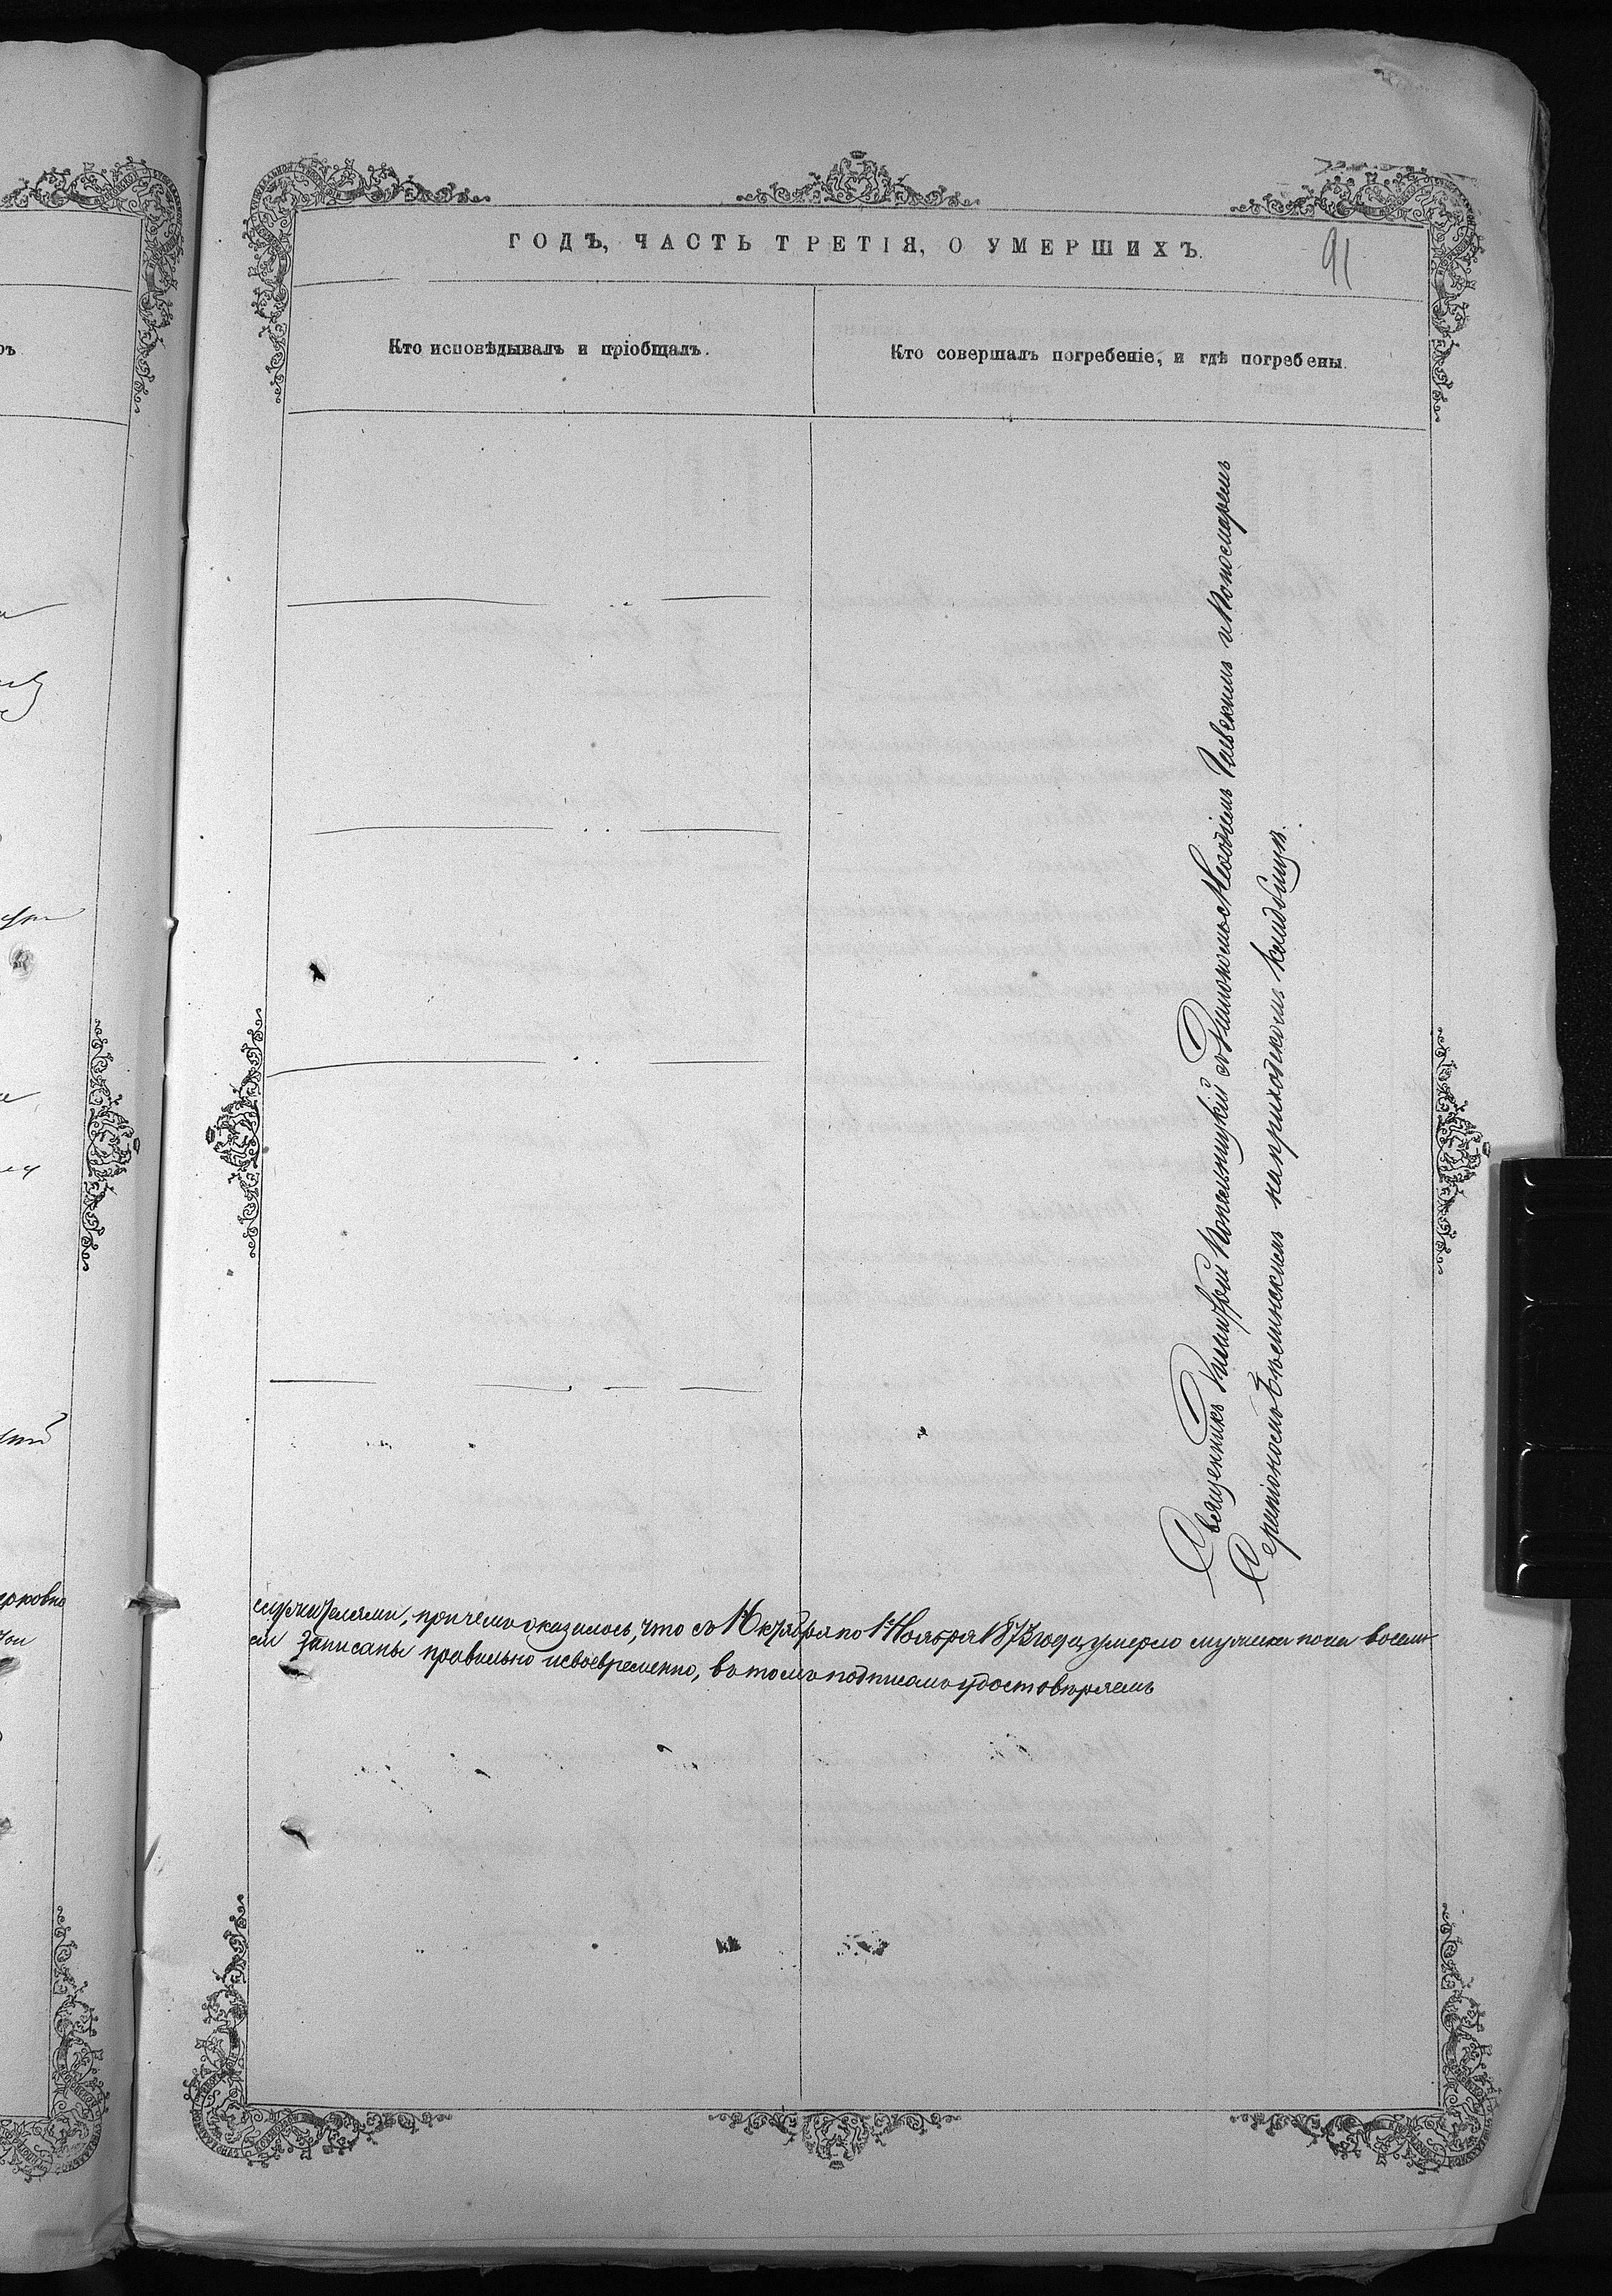 ГОДЪ, ЧАСТЬ ТРЕТІЯ, О УМЕРШИХЪ.
91
Кто исповѣдывалъ и пріобщалъ.
Кто совершалъ погребеніе, и гдѣ погребены.
Священникъ Димитрій Копельницкій съ Дьякономъ Меѳодіемъ и Пономаремъ
на приходскомъ кладбищѣ.
служителями, при чемъ оказалось, что съ 1 Октября по 1е Ноября 1873 года, умерло мужска пола восемь
записаны правильно и своевременно, въ томъ подписомъ удостовѣряемъ